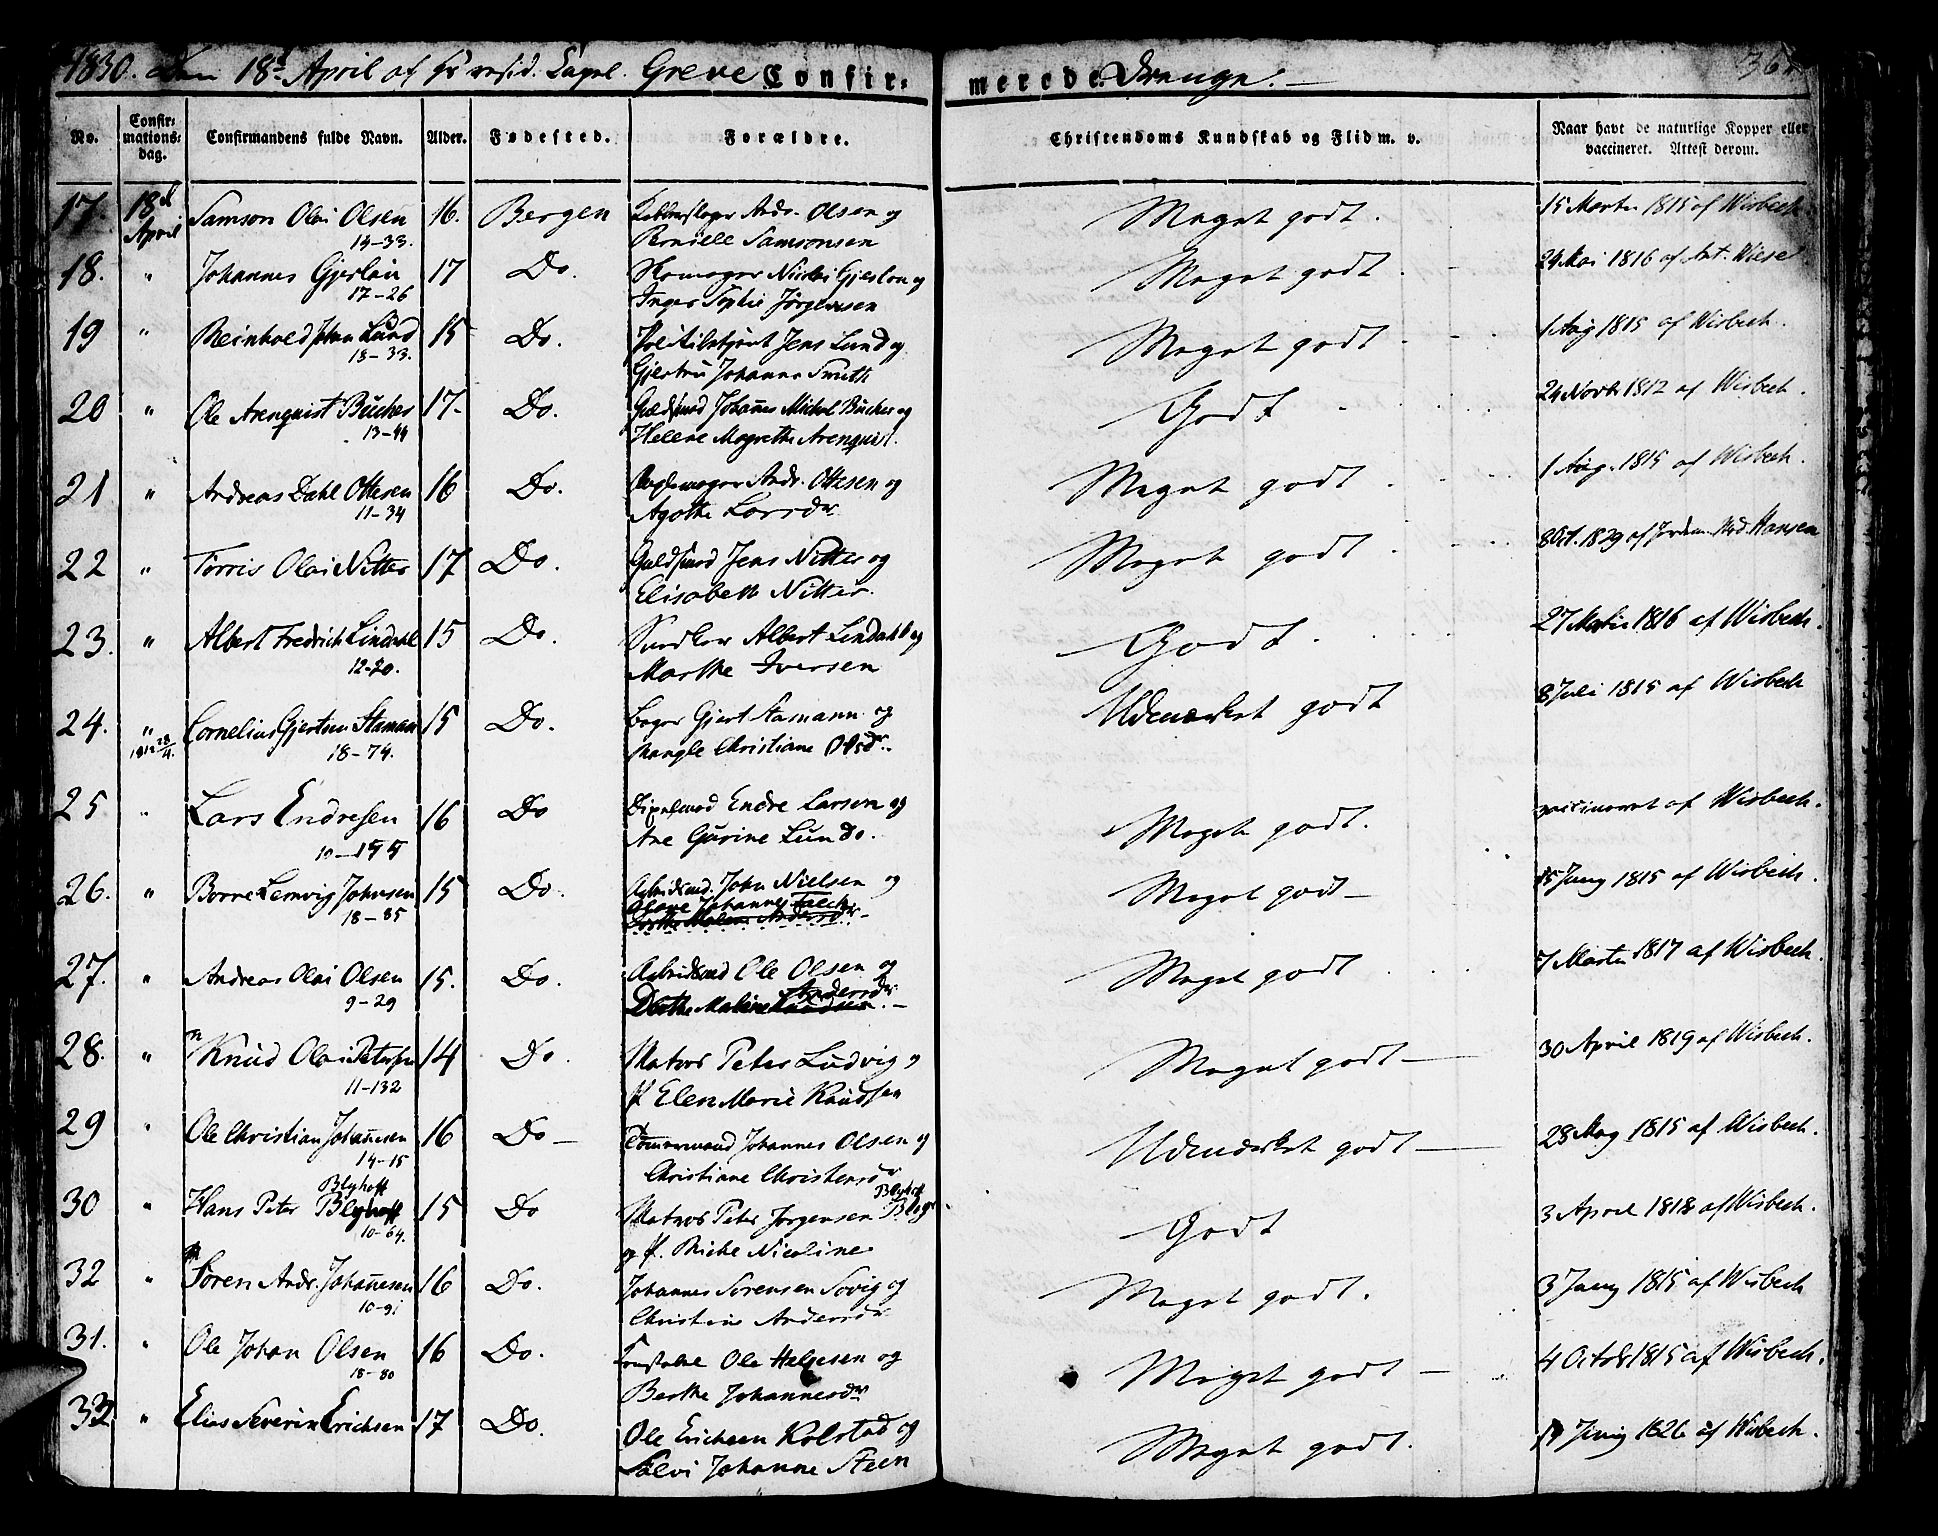 1830. Den 18d April af Capel. Greve Confir: merede Drenge. 36
No. Confir: mations: dag. Confirmandens fulde Navn. Alder. Fødested. Forældre. Christendoms Kundskab og Flid m. v. Naar havt de naturlige Kopper eller vaccineret. Attest derom.
17. 18d April Samson Olai Olsen 16. Bergen Andr. Olsen og Meget godt. 15 Marts 1815 af Wisbech.
14-33. Pernille Samsonsen
18. " Johannes Gjerløw 17 Do. Nicolai Gjerløw og Meget godt. 24 Mai 1816 af Ant. Wiese.
17-26 Inger Sophie Jørgensen
19 " Reinhold Johan Lund 15 Do. Jens Lund og Meget godt 1 Aug 1815 af Wisbech.
13-33. Gjertru Johanna Smith
20 " Ole Arenquist Bücher 17. Do. Guldsmed Johannes Michel Bücher og Godt 24 Novbr 1812 af Wisbech.
13-44 Helene Magrethe Arenquist.
21 " Andreas Dahl Ottesen 16 Do. Andr. Ottesen og Meget godt 1 Aug. 1815 af Wisbech.
11-34 Agathe Larsdr
22 " Torris Olai Nitter 17 Do. Guldsmed Jens Nitter og Meget godt 8 Oct. 1829 af Jordem. Mad. Hansen
Elisabeth Nitter.
23. " Albert Fredrich Lindahl 15 Do. Snedker Albert Lindahl og Godt 27 Martii 1816 af Wisbech.
12-20. Marthe Iversen
24. " Cornelius Gjertsen Stamann 15 Do. Bager Gjert Stamann og Udmærket godt 8 Juli 1815 af Wisbech
1812 28/4. 18-74. Mangle Christiane Olsdr.
25 " Lars Endresen 16 Do Endre Larsen og Meget godt. vaccineret af Wisbech.
10-155 Ane Gurine Lundo.
26. " Børre Lemvig Johnsen 15 Do. Arbeidsmd. John Nielsen og Meget godt 15 Juny 1815 af Wisbech.
18-35 Johanne Falch
Dorthe Malene Andersdr
27. " Andreas Olai Olsen 15. Do. Arbeidsmd Ole Olsen og Meget godt 7 Marts 1817 af Wisbech.
9-29 Dorthe Malene Knudsen. Andersdr
28. " Knud Olai Petersen 14 Do. Matros Peter Ludvig og Meget godt 30 April 1819 af Wisbech.
11-132 P. Elen Marie Knudsen
29 " Ole Christian Johannesen 16 Do Tømmermand Johannes Olsen og Udmærket godt 28 May 1815 af Wisbech.
14-15 Christiane Christensdr
30 " Hans Peter Blyhoff Blyhoff 15 Do Matros Peter Jørgensen Blyhoff Godt 3 April 1818 af Wisbech.
10-64. og P. Nicoline
32 " Søren Andr. Johannesen 16 Do. Johannes Sørensen Sovig og Meget godt. 3 Juny 1815 af Wisbech
10-91 Christine Andersdr
31. " Ole Johan Olsen 16 Do. Ole Helgesen og Meget godt 4 Octobr 1815 af Wisbech.
18-80 Berthe Johannesdr
33. " Elias Severin Erichsen 17 Do. Ole Erichsen Kolstad og Meget godt. 17 Juny 1826 af Wisbech.
Sølvi Johanne Steen